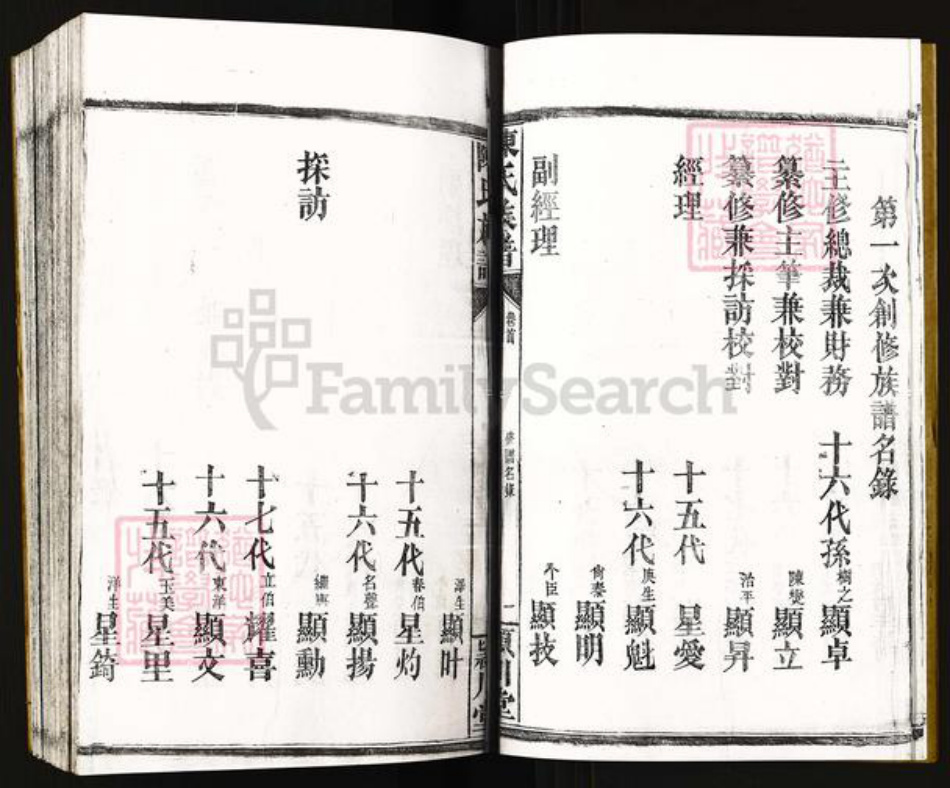 第一次創修族譜名錄
主修總裁兼財務 十六代孫 樹之 顯卓
纂修主筆兼校對 陳變 顯立
纂修兼採訪校對 治平 顯昇
經理 十五代 星愛
十六代 庚生 顯魁
尙泰 顯明
副經理 不臣 顯技
陳氏族譜 卷首 名錄 二 潁川堂
澤生 顯叶
十五代 春伯 星灼
十六代 名聲 顯揚
採訪 繼唐 顯動
十七代 立伯 耀喜
十六代 東洋 顯文
十五代 玉美 星里
洋生 星錡
FamilySearch